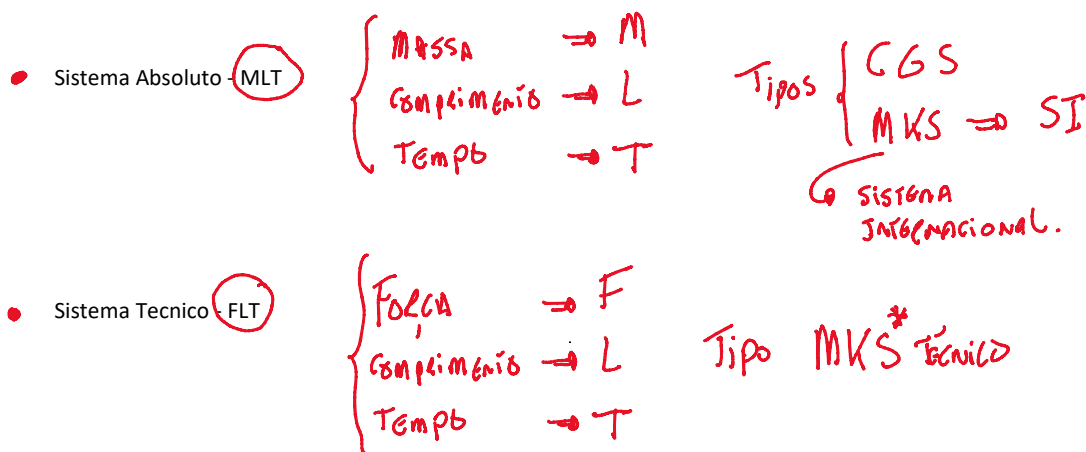 Sistema Absoluto - MLT
MASSA ⇒ M
COMPRIMENTO → L
TEMPO → T
TIPOS
CGS
MKS ⇒ SI
SISTEMA
INTERNACIONAL.
Sistema Tecnico - FLT
FORÇA ⇒ F
COMPRIMENTO → L
TEMPO → T
TIPO MKS* TÉCNICO